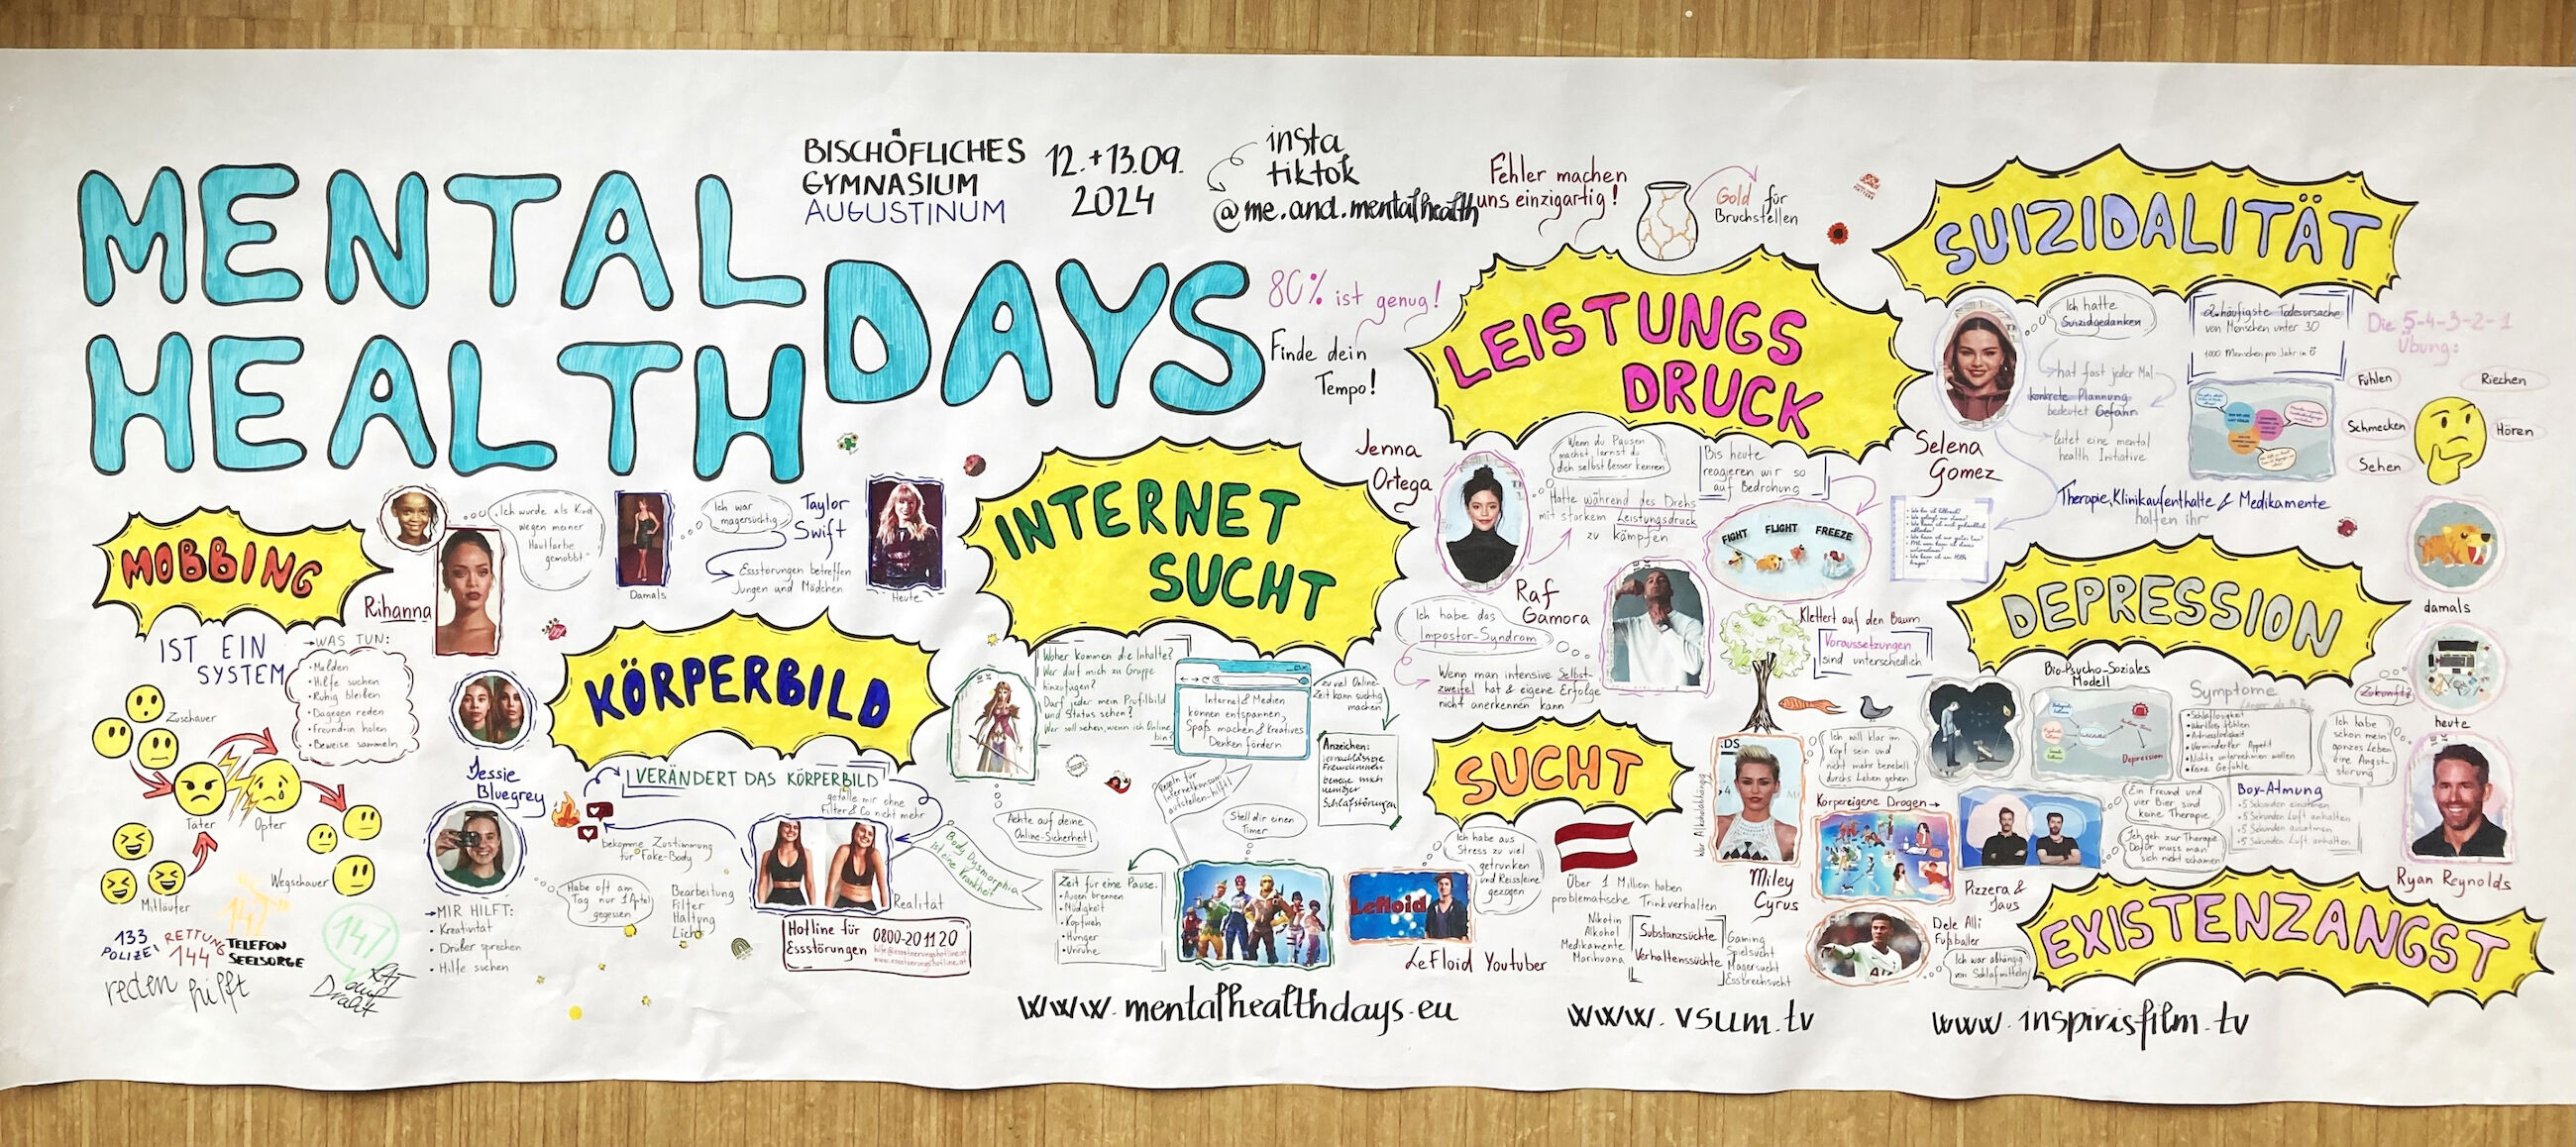 MENTAL
HEALTH
DAYS
BISCHÖFLICHES
GYMNASIUM
AUGUSTINUM
12.+13.09.
2024
insta
tiktok
@me.and.mentalhealth
Fehler machen
uns einzigartig!
Gold für
Bruchstellen
80% ist genug!
Finde dein
Tempo!
MOBBING
IST EIN
SYSTEM
→WAS TUN:
• Melden
• Hilfe suchen
• Ruhig bleiben
• Dagegen reden
• Freund:in holen
• Beweise sammeln
Zuschauer
Täter
Opfer
Mitläufer
Wegschauer
133
POLIZEI
RETTUNG
144
142
TELEFON
SEELSORGE
147
Rat
auf
Draht
reden hilft
Rihanna
Ich wurde als Kind
wegen meiner
Hautfarbe
gemobbt
Damals
Ich war
magersüchtig
Taylor
Swift
Essstörungen betreffen
Jungen und Mädchen
Heute
KÖRPERBILD
VERÄNDERT DAS KÖRPERBILD
gefalle mir ohne
Filter & Co nicht mehr
Jessie
Bluegrey
bekomme Zustimmung
für Fake-Body
Habe oft am
Tag nur 1 Apfel
gegessen
→MIR HILFT:
• Kreativität
• Drüber sprechen
• Hilfe suchen
Bearbeitung
Filter
Haltung
Licht
Realität
Body Dysmorphia
ist eine Krankheit
Hotline für
Essstörungen
0800-20 11 20
INTERNET
SUCHT
Woher kommen die Inhalte?
Wer darf mich zu Gruppe
hinzufügen?
Darf jeder mein Profilbild
und Status sehen?
Wer soll sehen, wenn ich Online
bin?
Internet & Medien
können entspannen,
Spaß machen & kreatives
Denken fördern
zu viel Online-
Zeit kann süchtig
machen
Anzeichen:
Schlafstörungen
Achte auf deine
Online-Sicherheit!
Regeln für
Internetkonsum
aufstellen-hilft!
Stell dir einen
Timer
Zeit für eine Pause:
• Augen brennen
• Müdigkeit
• Kopfweh
• Hunger
• Unruhe
LEISTUNGS
DRUCK
Jenna
Ortega
Wenn du Pausen
machst, lernst du
dich selbst besser kennen
Hatte während des Drehs
mit starkem Leistungsdruck
zu kämpfen
Bis heute
reagieren wir so
auf Bedrohung
FIGHT
FLIGHT
FREEZE
Raf
Camora
Ich habe das
Impostor-Syndrom
Wenn man intensive Selbst-
zweifel hat & eigene Erfolge
nicht anerkennen kann
Klettert auf den Baum
Voraussetzungen
sind unterschiedlich
SUCHT
Ich habe aus
Stress zu viel
getrunken
und Reissleine
gezogen
LeFloid
LeFloid Youtuber
Über 1 Million haben
problematische Trinkverhalten
Nikotin
Alkohol
Medikamente
Marihuana
Substanzsüchte
Verhaltenssüchte
Gaming
Spielsucht
Magersucht
Essbrechsucht
War Alkoholabhängig
Miley
Cyrus
Ich will klar im
Kopf sein und
nicht mehr benebelt
durchs Leben gehen
Körpereigene Drogen→
Dele Alli
Fußballer
Ich war abhängig
von Schlafmitteln
SUIZIDALITÄT
Selena
Gomez
Ich hatte
Suizidgedanken
hat fast jeder Mal
konkrete Plannung
bedeutet Gefahr
leitet eine mental
health Initiative
2. häufigste Todesursache
von Menschen unter 30
1000 Menschen pro Jahr in Ö
Therapie, Klinikaufenthalte & Medikamente
halfen ihr
Die 5-4-3-2-1
Übung:
Fühlen
Riechen
Schmecken
Hören
Sehen
DEPRESSION
Bio-Psycho-Soziales
Modell
Depression
Symptome
• Schlaflosigkeit
• Wertlos fühlen
• Antriebslosigkeit
• Verminderter Appetit
• Nichts unternehmen wollen
• Keine Gefühle
Ein Freund und
vier Bier sind
keine Therapie
Ich geh zur Therapie
Dafür muss man
sich nicht schämen
Pizzera &
Jaus
Box-Atmung
• 5 Sekunden einatmen
• 5 Sekunden Luft anhalten
• 5 Sekunden ausatmen
• 5 Sekunden Luft anhalten
damals
heute
Zukunft?
Ich habe
schon mein
ganzes Leben
eine Angst-
störung
Ryan Reynolds
EXISTENZANGST
www.mentalhealthdays.eu
www.vsum.tv
www.inspirisfilm.tv